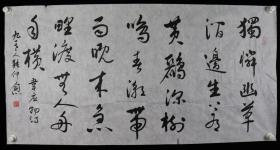 獨憐幽草
澗邊生上有
黃鸝深樹
鳴春潮帶
雨晚來急
野渡無人舟
自橫 韋應物詩